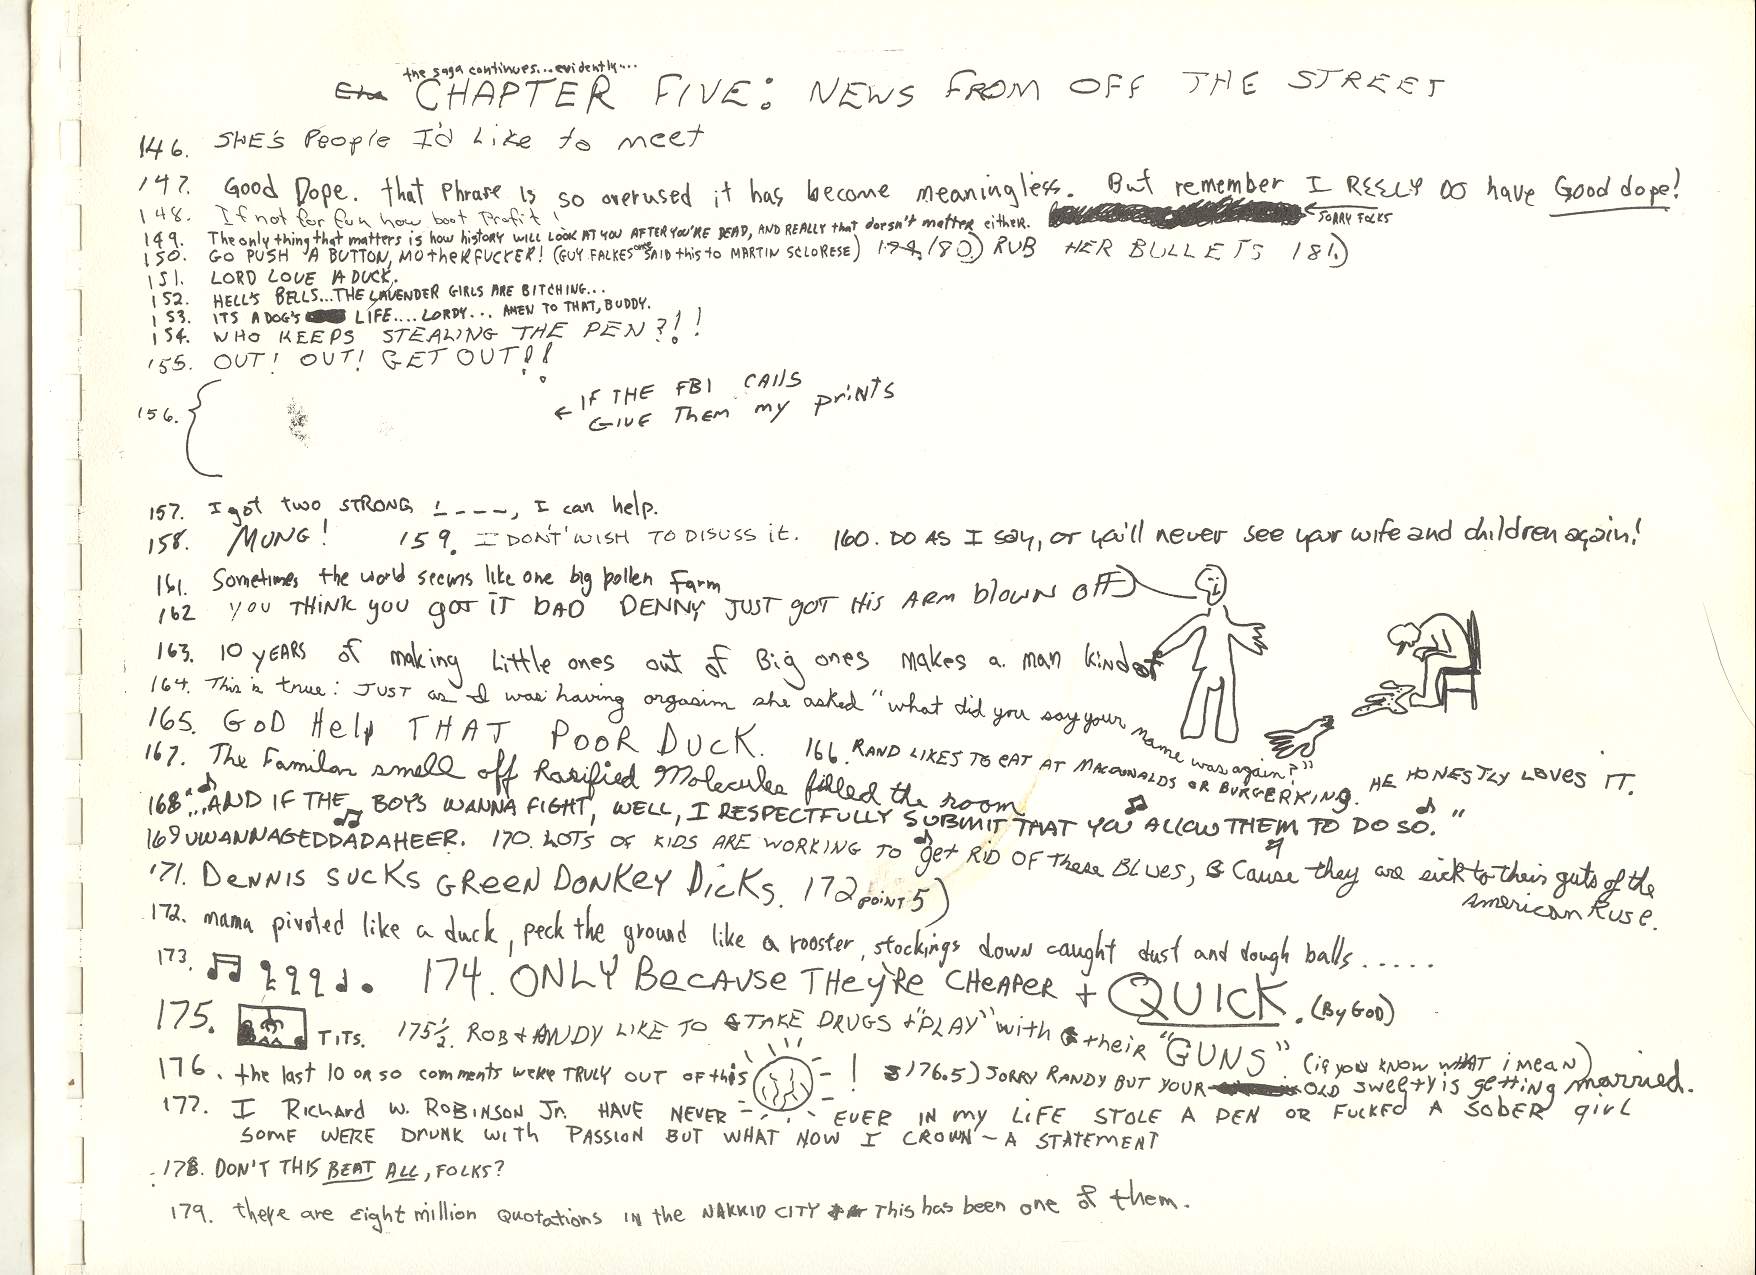 the saga continues... evidently....
CHAPTER FIVE: NEWS FROM OFF THE STREET
146. SHE'S People I'd Like to meet
147. Good Dope. that Phrase Is so overused it has become meaningless. But remember I REELY DO have Good dope!
148. If not for fun how boot Profit!
SORRY FOLKS
149. The only thing that matters is how history WILL LOOK AT YOU AFTER YOU'RE DEAD, AND REALLY that doesn't matter either.
150. GO PUSH A BUTTON, MOtHERFUCKER! (GUY FALKES ONCE SAID this to MARTIN SCLORESE) 179. 180.) RUB HER BULLETS 181.)
151. LORD LOVE A DUCK.
152. HELL'S BELLS... THE LAVENDER GIRLS ARE BITCHING...
153. ITS A DOG'S LIFE.... LORDY... AMEN TO THAT, BUDDY.
154. WHO KEEPS STEALING THE PEN?!!
155. OUT! OUT! GET OUT!!
156. ← IF THE FBI CAlls
GIVE THEM my prints
157. I got two STRONG 1----, I can help.
158. MUNG! 159. I DON'T' WISH TO DISUSS it. 160. DO AS I say, or you'll never see your wife and children again!
161. Sometimes the world seems like one big pollen farm
162 YOU THINK YOU GOT IT BAD DENNY JUST GOT HIS ARM blown off
163. 10 YEARS of making Little ones out of Big ones makes a man kindof
164. This is true: JUST as I was having orgasim she asked "what did you say your name was again?"
165. GOD Help THAT POOR DUCK. 166. RAND LIKES TO EAT AT MACDONALDS OR BURGERKING. HE HONESTLY LOVES IT.
167. The Familar smell off Rarified Molecules filled the room
168 "...AND IF THE BOYS WANNA FIGHT, WELL, I RESPECTFULLY SUBMIT THAT YOU ALLOW THEM TO DO SO."
169 UWANNAGEDDADAHEER. 170. LOTS OF KIDS ARE WORKING TO get RID OF These BLUES, Cause they are sick to their guts of the
American Ruse.
171. DENNIS SUCKS GREEN DONKEY DICKS. 172 POINT 5)
172. mama pivoted like a duck, peck the ground like a rooster, stockings down caught dust and dough balls.....
173. ♫ ♩. 174. ONLY BECAUSE THEY'RE CHEAPER + QUICK. (By GOD)
175. TITS. 175½. ROB + ANDY LIKE TO TAKE DRUGS + "PLAY" with their "GUNS" (if you KNOW WHAT I mean)
176. the last 10 or so comments were TRULY OUT OF this ! 176.5) SORRY RANDY BUT YOUR OLD sweety is getting married.
177. I Richard W. ROBINSON Jr. HAVE NEVER EVER IN my LIFE STOLE A PEN OR FUCKED A SOBER girl
SOME WERE DRUNK WITH PASSION BUT WHAT NOW I CROWN ~ A STATEMENT
178. DON'T THIS BEAT ALL, FOLKS?
179. there are Eight million Quotations IN the NAKKID CITY This has been one of them.